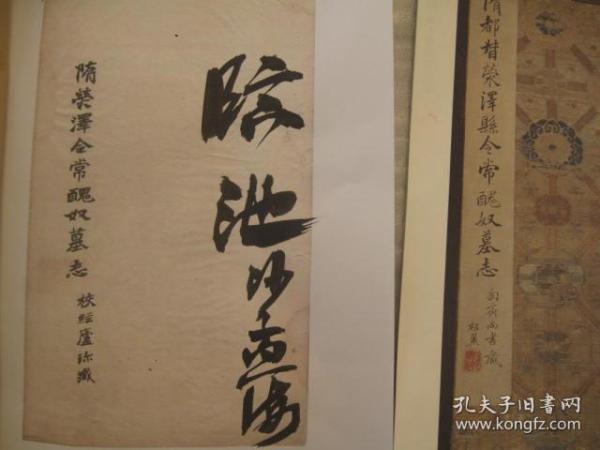 隋都督榮澤縣令常醜奴墓志
匋齋尚書藏
臨池
隋榮澤令常醜奴墓志
校經廬珍藏
孔夫子旧书网
www.kongfz.com